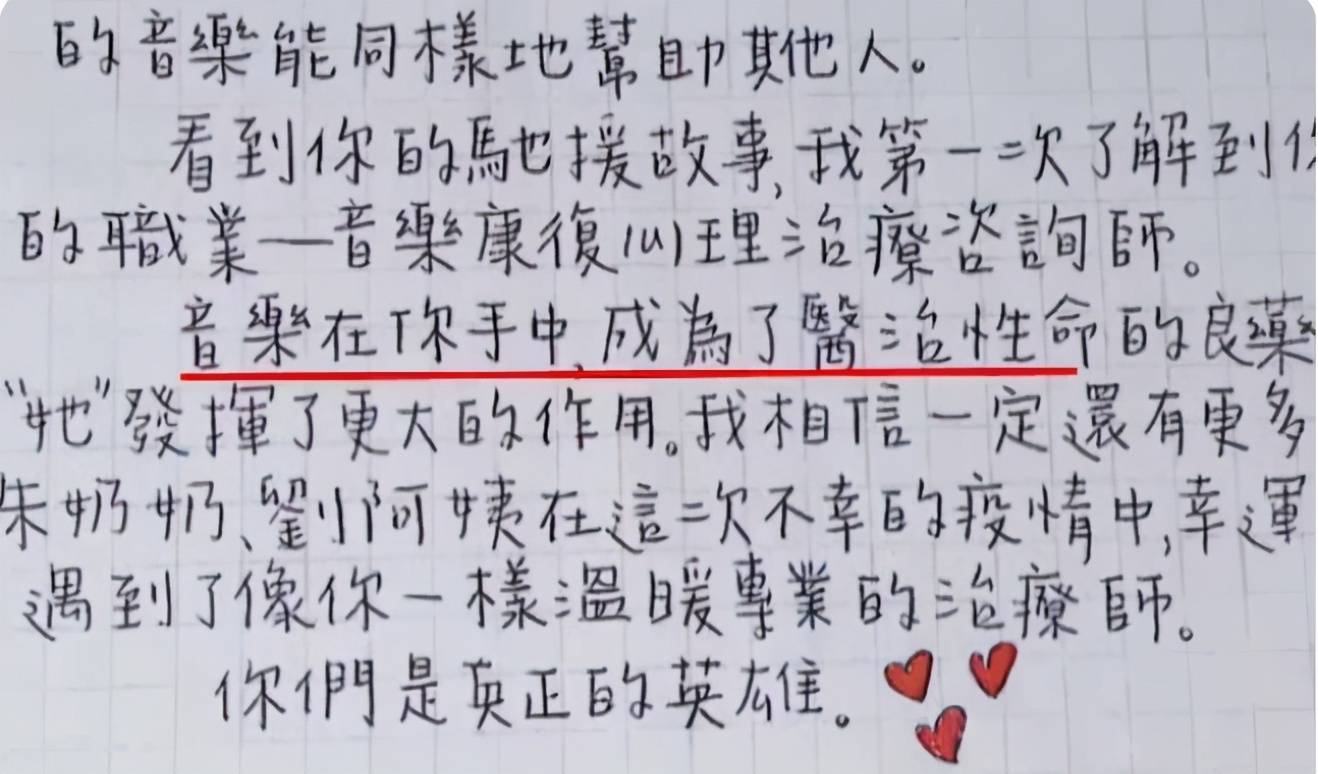 的音樂能同樣地幫助其他人。
看到你的馳援故事,我第一次了解到你
的職業—音樂康復心理治療咨詢師。
音樂在你手中,成為了醫治性命的良藥
“她”發揮了更大的作用。我相信一定還有更多
朱奶奶、劉阿姨在這次不幸的疫情中,幸運
遇到了像你一樣溫暖專業的治療師。
你們是真正的英雄。